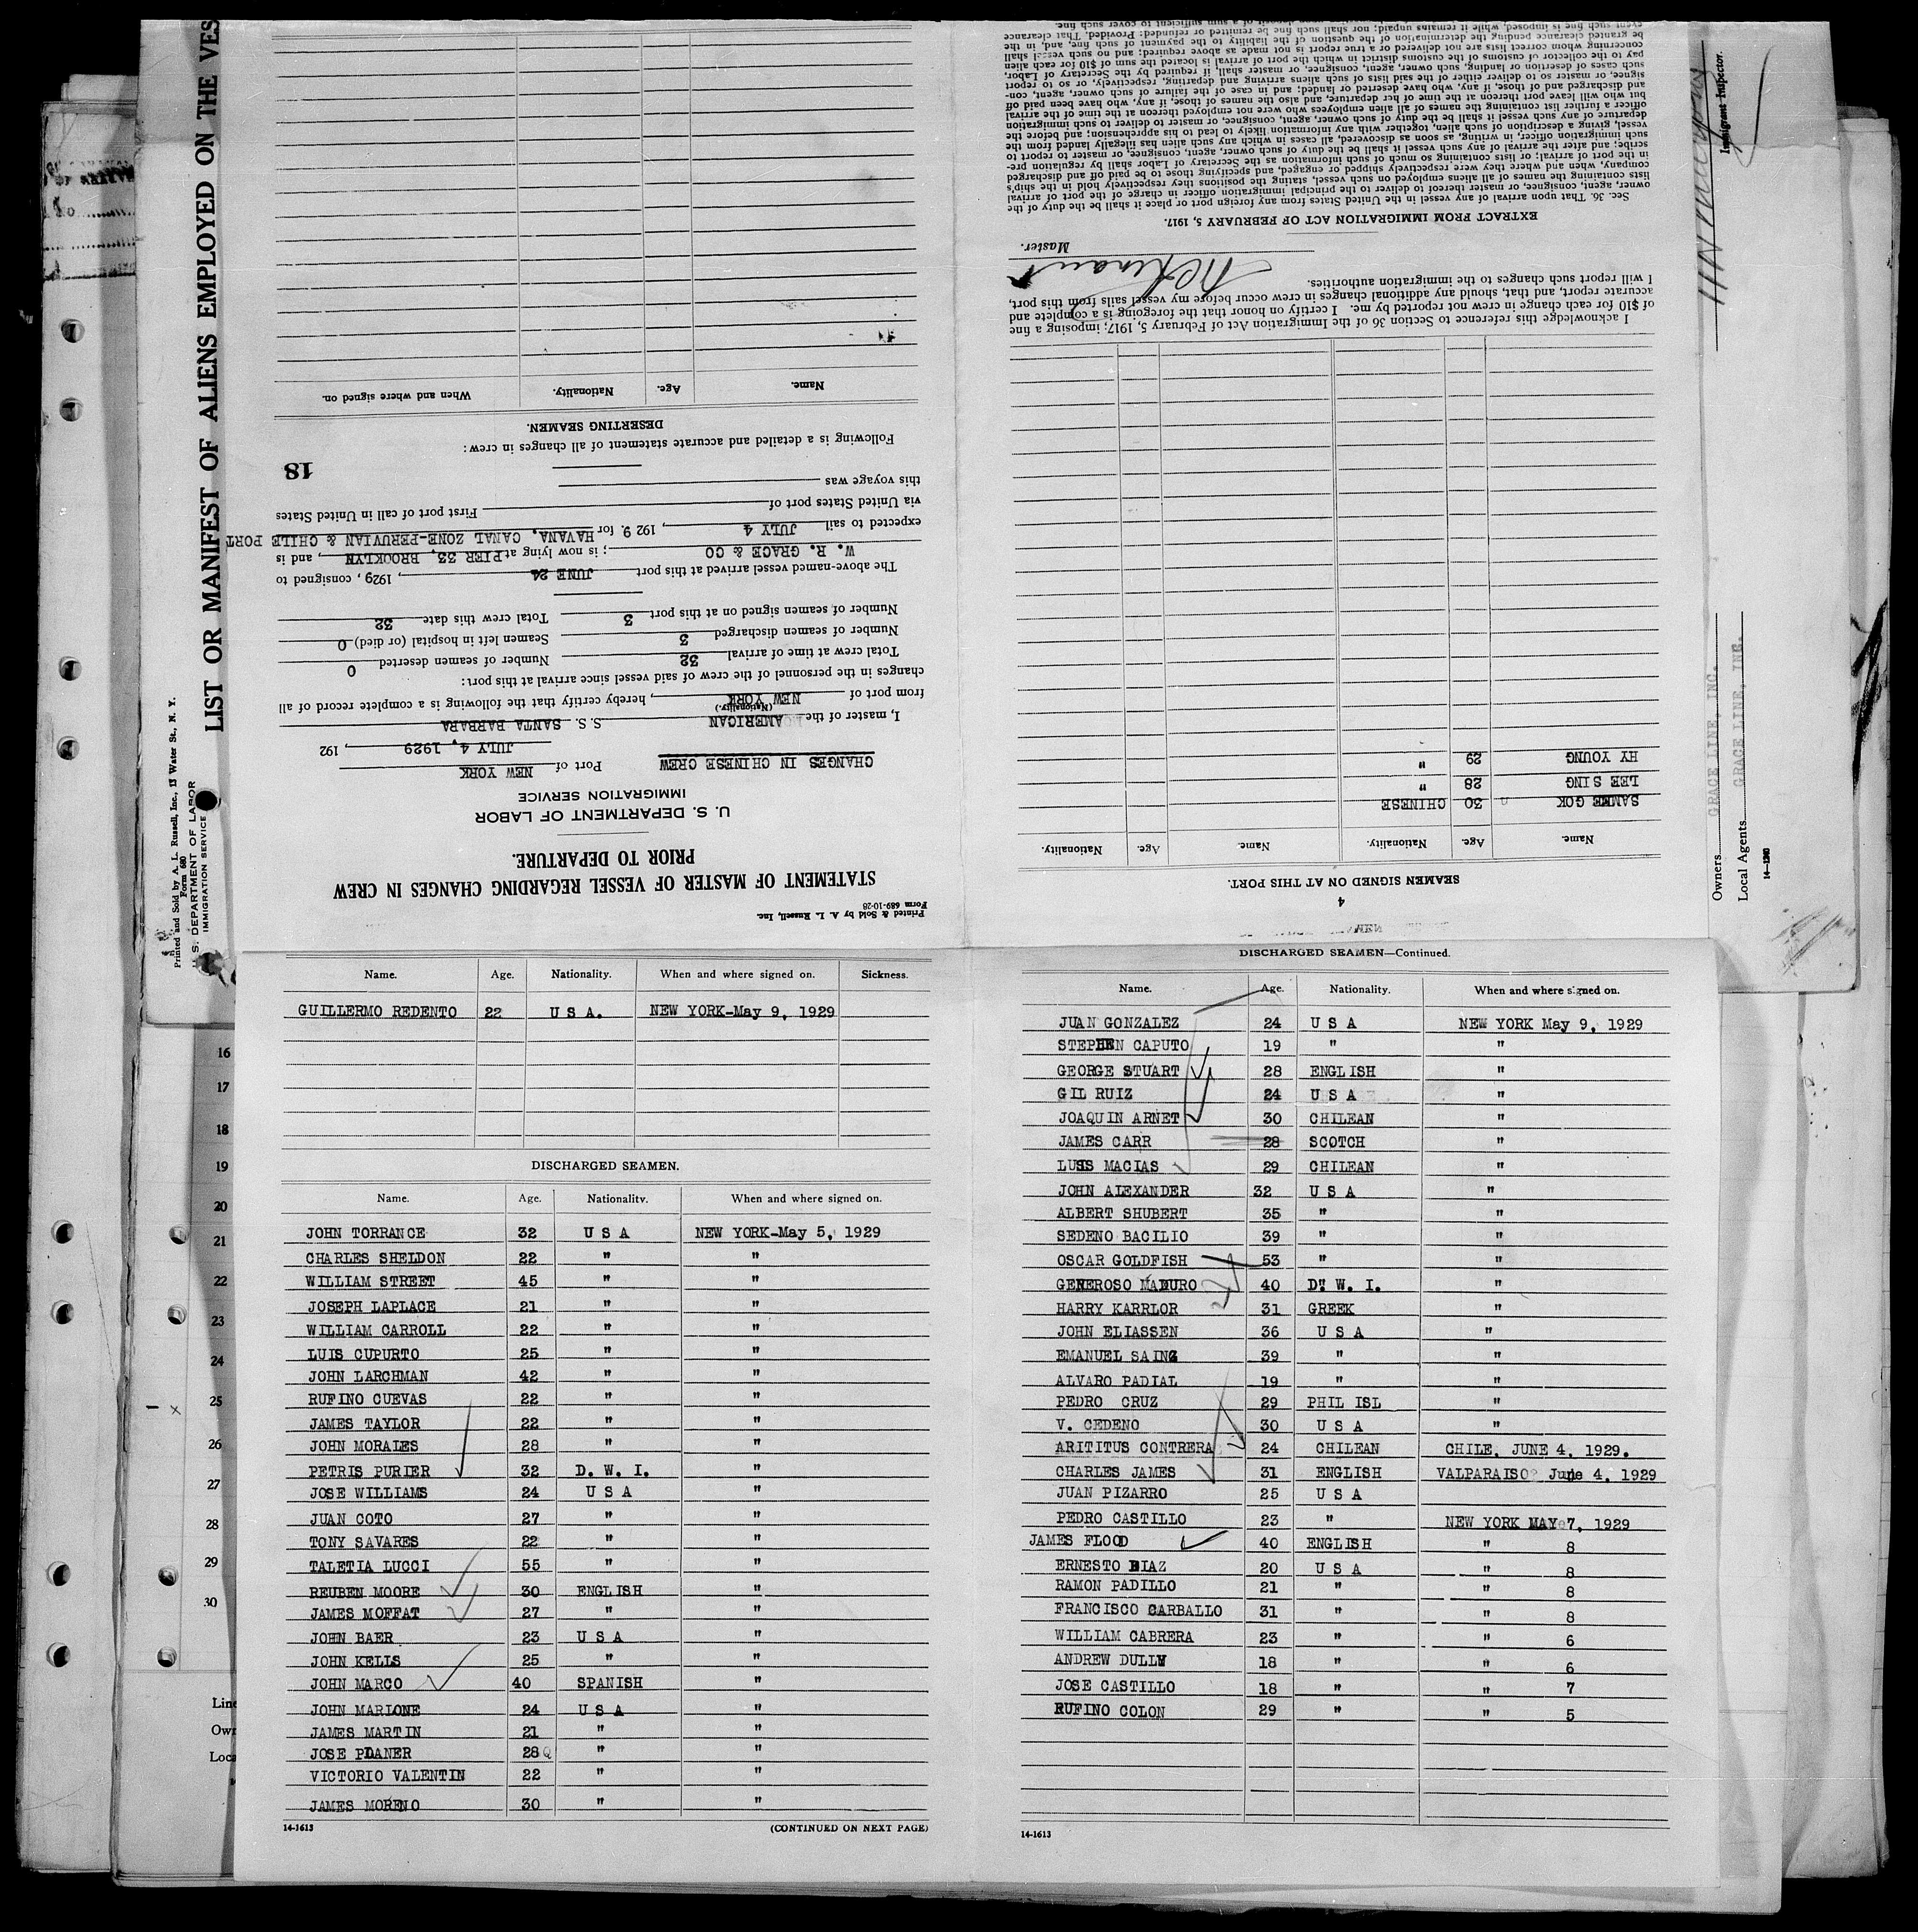 LIST OR MANIFEST OF ALIENS EMPLOYED ON THE VES
Printed and Sold by A. L. Russell, Inc., 13 Water St., N. Y.
Form 680
U. S. DEPARTMENT OF LABOR
IMMIGRATION SERVICE
Printed & Sold by A. L. Russell, Inc.
Form 689-10-28
STATEMENT OF MASTER OF VESSEL REGARDING CHANGES IN CREW
PRIOR TO DEPARTURE.
U. S. DEPARTMENT OF LABOR
IMMIGRATION SERVICE
CHANGES IN CHINESE CREW
Port of NEW YORK
JULY 4, 1929, 192
I, master of the AMERICAN S.S. SANTA BARBARA
(Nationality.)
from port of NEW YORK, hereby certify that the following is a complete record of all
changes in the personnel of the crew of said vessel since arrival at this port:
Total crew at time of arrival 32 Number of seamen deserted 0
Number of seamen discharged 3 Seamen left in hospital (or died) 0
Number of seamen signed on at this port 3 Total crew this date 32
The above-named vessel arrived at this port JUNE 24, 1929, consigned to
W. R. GRACE & CO; is now lying at PIER 33, BROOKLYN, and is
expected to sail JULY 4, 192 9. for HAVANA, CANAL ZONE-PERUVIAN & CHILE PORT
via United States port of First port of call in United States
this voyage was
18
Following is a detailed and accurate statement of all changes in crew:
DESERTING SEAMEN.
Name. Age. Nationality. When and where signed on.
4
SEAMEN SIGNED ON AT THIS PORT.
Name. Age. Nationality. Name. Age. Nationality.
SAMME GOK 30 CHINESE
LEE SING 28 "
HY YOUNG 29 "
I acknowledge this reference to Section 36 of the Immigration Act of February 5, 1917; imposing a fine
of $10 for each change in crew not reported by me. I certify on honor that the foregoing is a complete and
accurate report, and that, should any additional changes in crew occur before my vessel sails from this port,
I will report such changes to the immigration authorities.
Master.
EXTRACT FROM IMMIGRATION ACT OF FEBRUARY 5, 1917.
Sec. 36. That upon arrival of any vessel in the United States from any foreign port or place it shall be the duty of the
owner, agent, consignee, or master thereof to deliver to the principal immigration officer in charge of the port of arrival
lists containing the names of all aliens employed on such vessel, stating the positions they respectively hold in the ship's
company, when and where they were respectively shipped or engaged, and specifying those to be paid off and discharged
in the port of arrival; or lists containing so much of such information as the Secretary of Labor shall by regulation pre-
scribe; and after the arrival of any such vessel it shall be the duty of such owner, agent, consignee, or master to report to
such immigration officer, in writing, as soon as discovered, all cases in which any such alien has illegally landed from the
vessel, giving a description of such alien, together with any information likely to lead to his apprehension; and before the
departure of any such vessel it shall be the duty of such owner, agent, consignee, or master to deliver to such immigration
officer a further list containing the names of all alien employees who were not employed thereon at the time of the arrival
but who will leave port thereon at the time of her departure, and also the names of those, if any, who have been paid off
and discharged and of those, if any, who have deserted or landed; and in case of the failure of such owner, agent, con-
signee, or master so to deliver either of the said lists of such aliens arriving and departing, respectively, or so to report
such cases of desertion or landing, such owner, agent, consignee, or master shall, if required by the Secretary of Labor,
pay to the collector of customs of the customs district in which the port of arrival is located the sum of $10 for each alien
concerning whom correct lists are not delivered or a true report is not made as above required; and no such vessel shall
be granted clearance pending the determination of the question of the liability to the payment of such fine, and, in the
event such fine is imposed, while it remains unpaid; nor shall such fine be remitted or refunded: Provided, That clearance
Immigrant Inspector.
Owners GRACE LINE, INC.
Local Agents GRACE LINE, INC.
14-1240
Name. Age. Nationality. When and where signed on. Sickness.
GUILLERMO REDENTO 22 U S A. NEW YORK-May 9, 1929
DISCHARGED SEAMEN.
Name. Age. Nationality. When and where signed on.
JOHN TORRANCE 32 U S A NEW YORK-May 5, 1929
CHARLES SHELDON 22 " "
WILLIAM STREET 45 " "
JOSEPH LAPLACE 21 " "
WILLIAM CARROLL 22 " "
LUIS CUPURTO 25 " "
JOHN LARCHMAN 42 " "
RUFINO CUEVAS 22 " "
JAMES TAYLOR 22 " "
JOHN MORALES 28 " "
PETRIS PURIER 32 D. W. I. "
JOSE WILLIAMS 24 U S A "
JUAN COTO 27 " "
TONY SAVARES 22 " "
TALETIA LUCCI 55 " "
REUBEN MOORE 30 ENGLISH "
JAMES MOFFAT 27 " "
JOHN BAER 23 U S A "
JOHN KELLS 25 " "
JOHN MARCO 40 SPANISH "
JOHN MARIONE 24 U S A "
JAMES MARTIN 21 " "
JOSE PLANER 28 " "
VICTORIO VALENTIN 22 " "
JAMES MORENO 30 " "
14-1613 (CONTINUED ON NEXT PAGE)
DISCHARGED SEAMEN—Continued.
Name. Age. Nationality. When and where signed on.
JUAN GONZALEZ 24 U S A NEW YORK May 9, 1929
STEPHEN CAPUTO 19 " "
GEORGE STUART 28 ENGLISH "
GIL RUIZ 24 U S A "
JOAQUIN ARNET 30 CHILEAN "
JAMES CARR 28 SCOTCH "
LUIS MACIAS 29 CHILEAN "
JOHN ALEXANDER 32 U S A "
ALBERT SHUBERT 35 " "
SEDENO BACILIO 39 " "
OSCAR GOLDFISH 53 " "
GENEROSO MADURO 40 D. W. I. "
HARRY KARRLOR 31 GREEK "
JOHN ELIASSEN 36 U S A "
EMANUEL SAING 39 " "
ALVARO PADIAL 19 " "
PEDRO CRUZ 29 PHIL ISL "
V. CEDENO 30 U S A "
ARITITUS CONTRERA 24 CHILEAN CHILE, JUNE 4, 1929.
CHARLES JAMES 31 ENGLISH VALPARAISO June 4, 1929
JUAN PIZARRO 25 U S A
PEDRO CASTILLO 23 " NEW YORK MAY 7, 1929
JAMES FLOOD 40 ENGLISH " 8
ERNESTO DIAZ 20 U S A " 8
RAMON PADILLO 21 " " 8
FRANCISCO CARBALLO 31 " " 8
WILLIAM CABRERA 23 " " 6
ANDREW DULLY 18 " " 6
JOSE CASTILLO 18 " " 7
RUFINO COLON 29 " " 5
14-1613
16
17
18
19
20
21
22
23
24
25
26
27
28
29
30
Line
Own
Loca